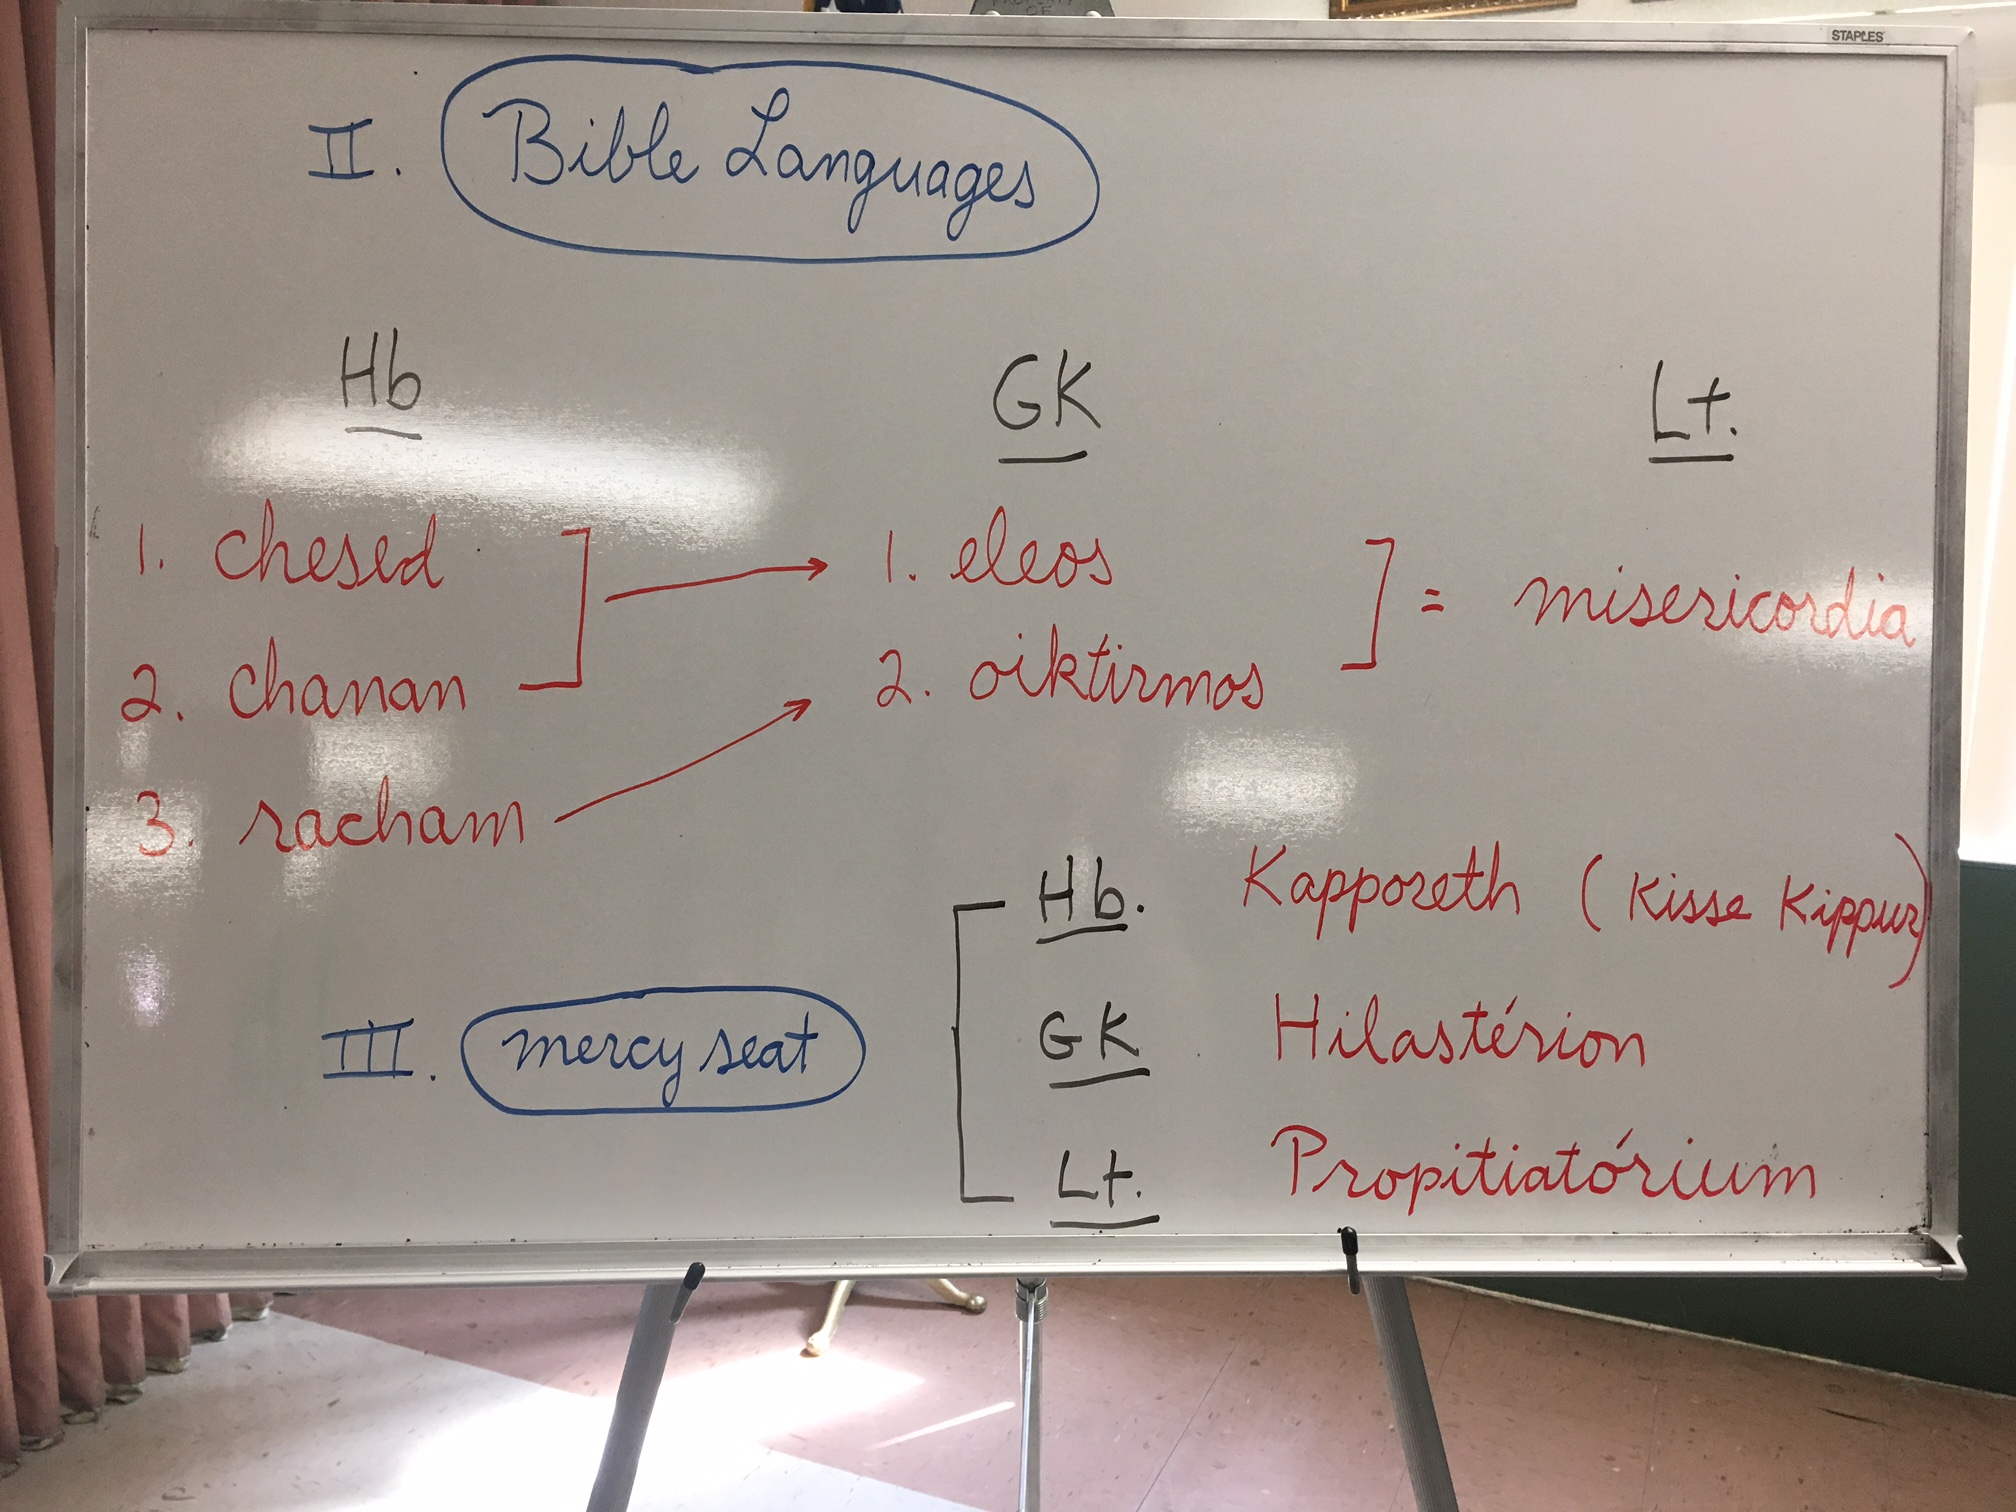 PROPERTY
OF
STAPLES
II. Bible Languages
Hb GK Lt.
1. chesed ] → 1. eleos ] = misericordia
2. chanan 2. oiktirmos
3. racham →
Hb. Kapporeth (Kisse Kippur)
III. mercy seat GK Hilastérion
Lt. Propitiatórium